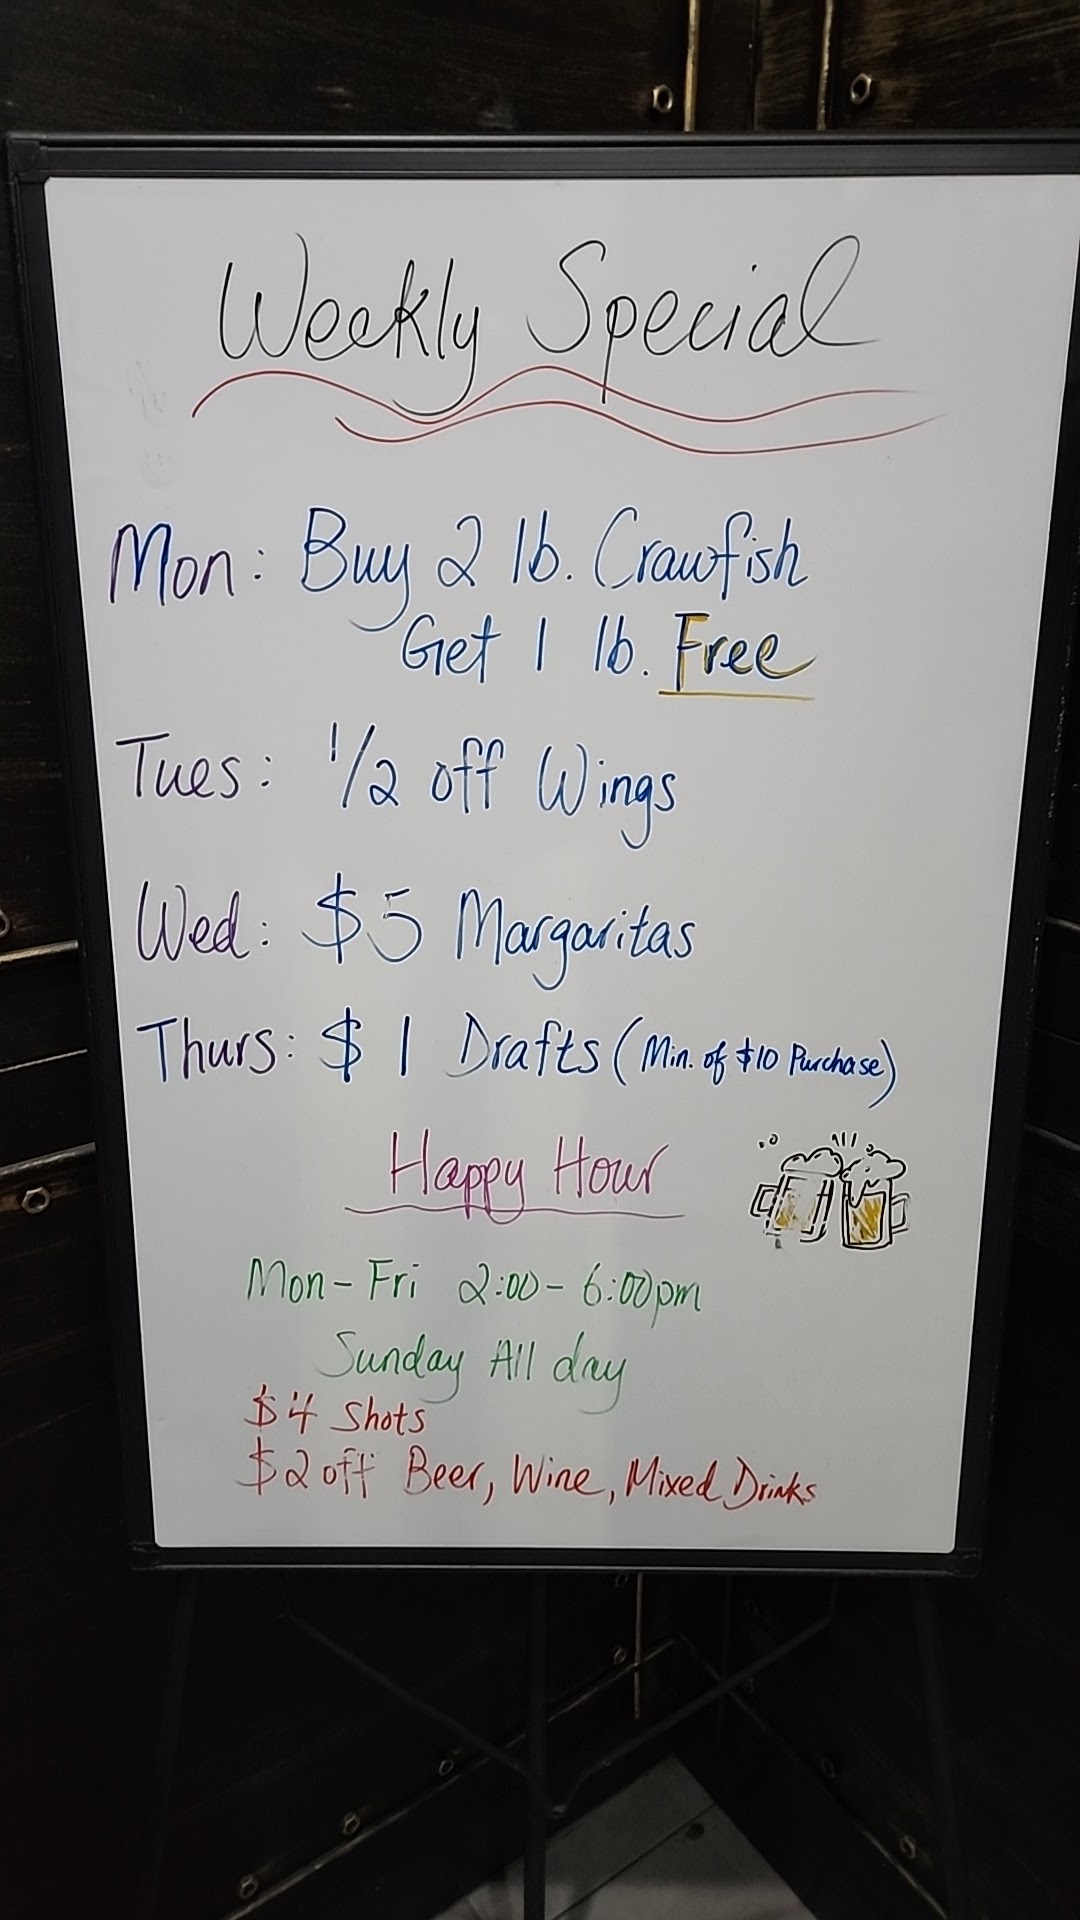 Weekly Special
Mon: Buy 2 lb. Crawfish
Get 1 lb. Free
Tues: 1/2 off Wings
Wed: $5 Margaritas
Thurs: $1 Drafts (Min. of $10 Purchase)
Happy Hour
Mon-Fri 2:00-6:00pm
Sunday All day
$4 Shots
$2 off Beer, Wine, Mixed Drinks